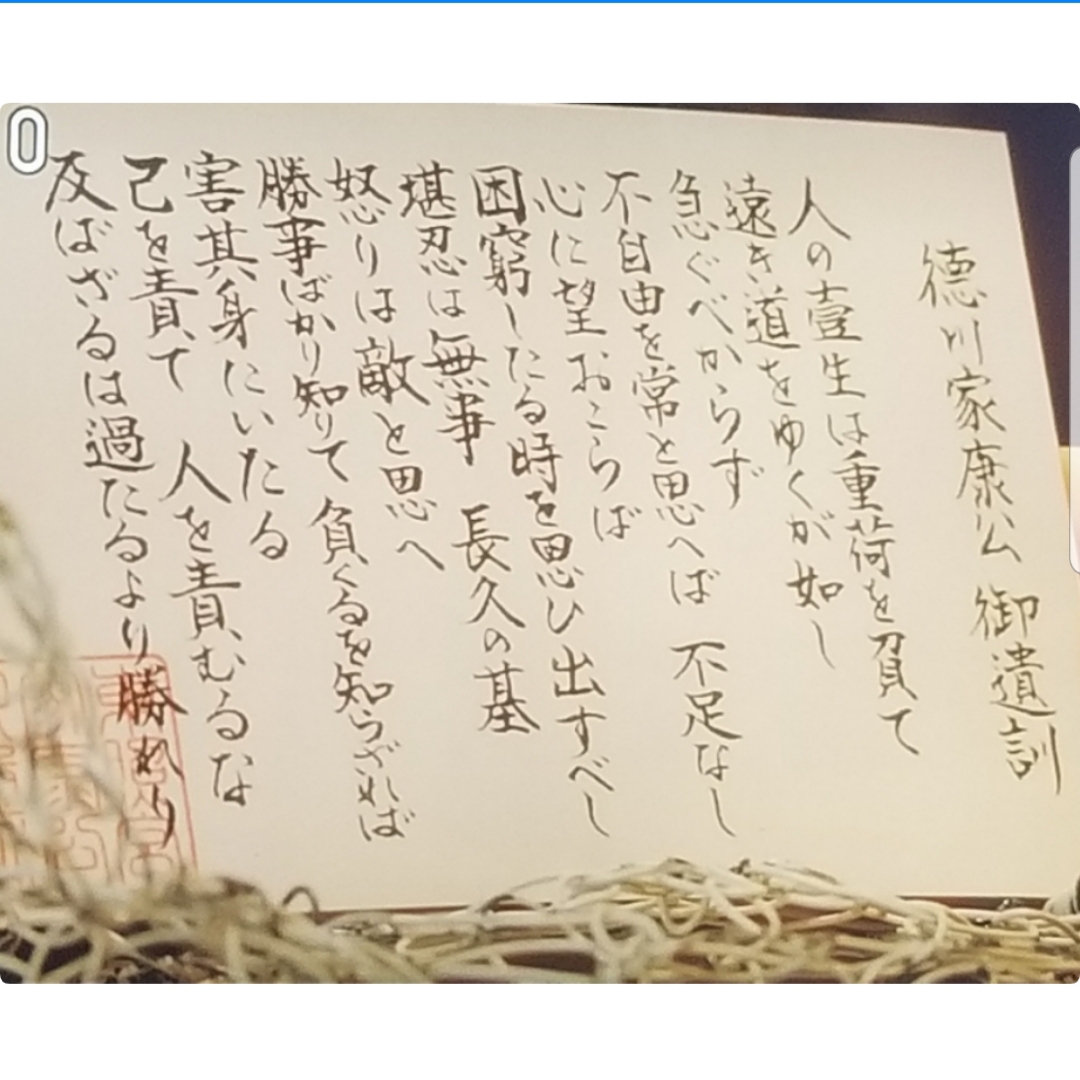 徳川家康公 御遺訓
人の壹生は重荷を負て
遠き道をゆくが如し
急ぐべからず
不自由を常と思へば 不足なし
心に望おこらば
困窮したる時を思ひ出すべし
堪忍は無事 長久の基
怒りは敵と思へ
勝事ばかり知りて 負くるを知らざれば
害其身にいたる
己を責て 人を責むるな
反ばざるは過たるより勝れり
0